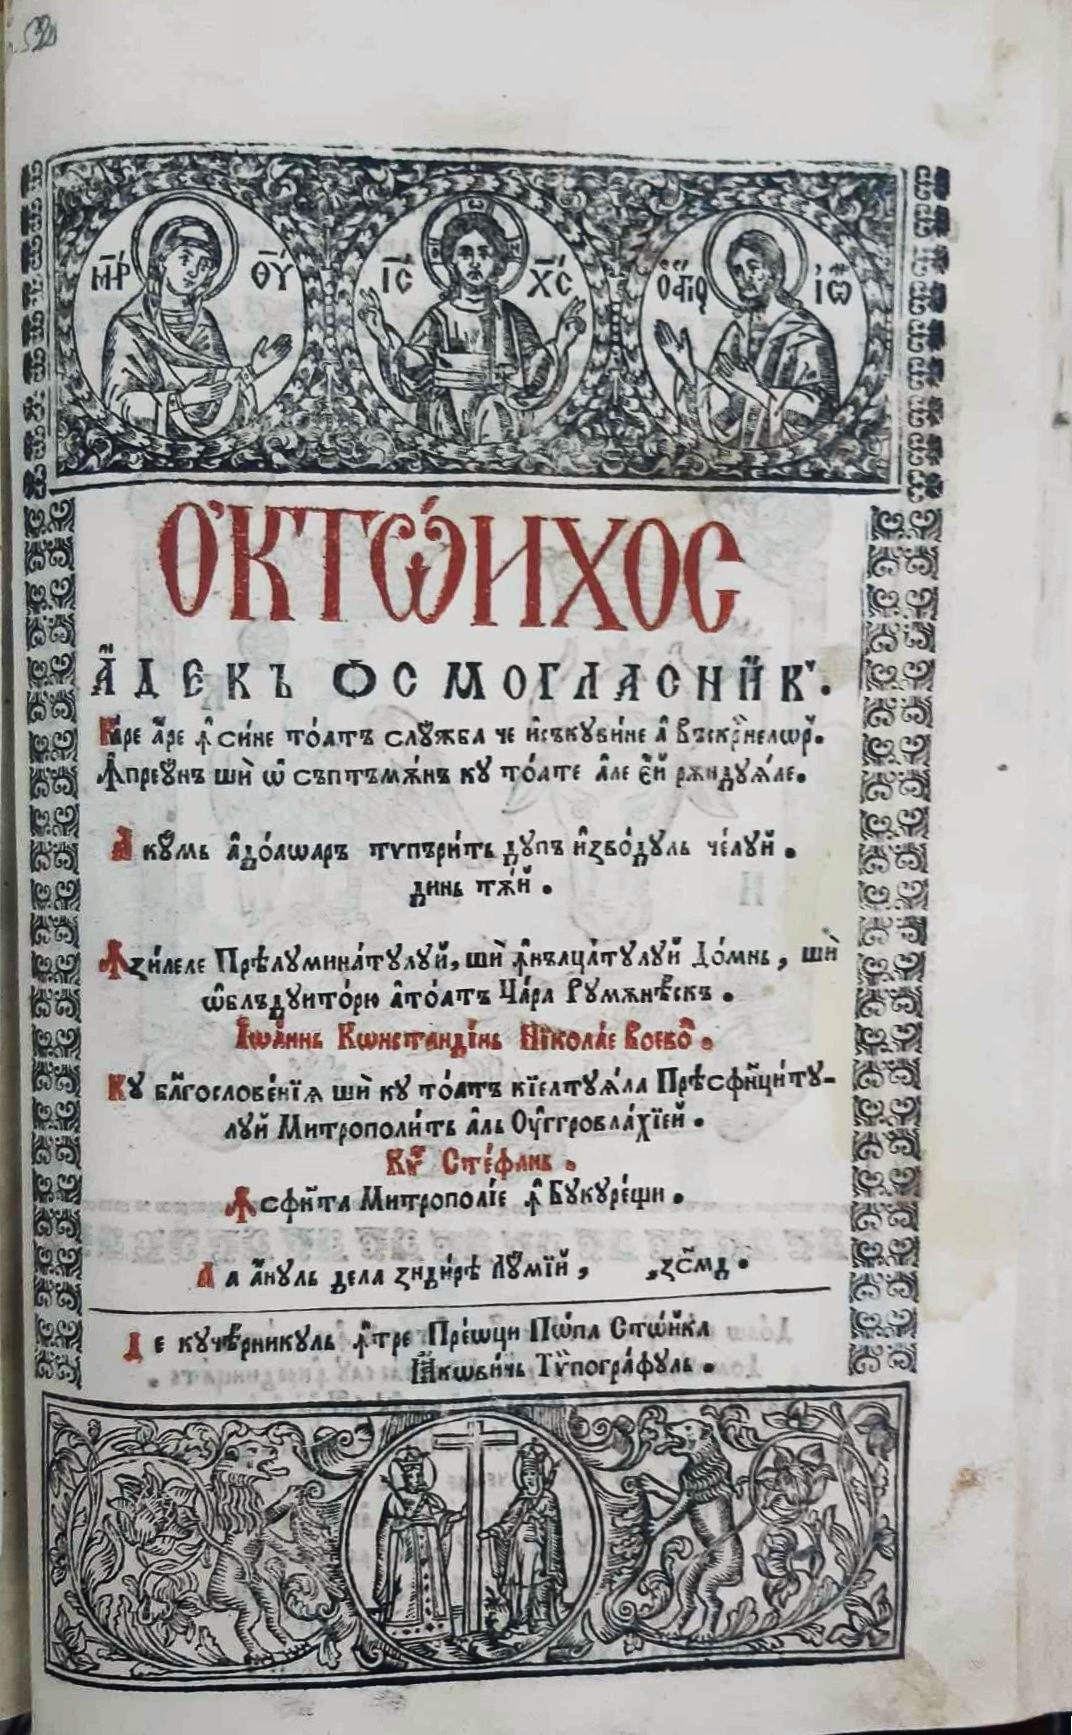 52
М҃Р Ѳ҃Ѵ І҃С Х҃С Ὁ ἅгіос Іѡ҃
Ѻ҆КТѠ́ИХОС
А҆ДЕКЪ ѺСМОГЛАСНИ́К.
Ка́ре а҆́ре ꙟсі́не то́атъ слꙋ́жба че
Ꙟпреꙋ́нъ шѝ ѡ҆ съптъмѫ́нъ кꙋ то́ате а҆́ле е҆́й рѫндꙋѧ́ле.
А кꙋ́мь а҆до́аѡаръ тѵпъри́ть дꙋпъ и҆зво́дꙋль че́лꙋй.
динь тѫ́й.
Ꙟ зи́леле Прѣлꙋмина́тꙋлꙋй, шѝ ꙟнълца́тꙋлꙋй До́мнь, шѝ
ѡ҆блъдꙋито́рю а҆то́атъ Цара Рꙋмѫнѣ́скъ.
Іѡа́ннь Кѡнстандíнь Нїкола́е Воево҃.
Кꙋ бл҃гослове́нїѧ шѝ кꙋ то́атъ кїелтꙋѧ́ла Прѣсфин҃ци́тꙋ-
лꙋй Митрополи́ть а҆́ль Оу҆ггровла́хїей.
Кѵ҃р Сте́фань.
Ꙟ сфн҃та Митрополі́е ꙟ Бꙋкꙋре́щи.
Л а а҆́нꙋль дела зиди́рѣ Лꙋ́мїй, ҂зс҃мд.
Д е кꙋче́рникꙋль ꙟ҆тре Пре́ѡци По́па Сто́йка
Іа҆кѡви́чь Тѷпогра́фꙋль.